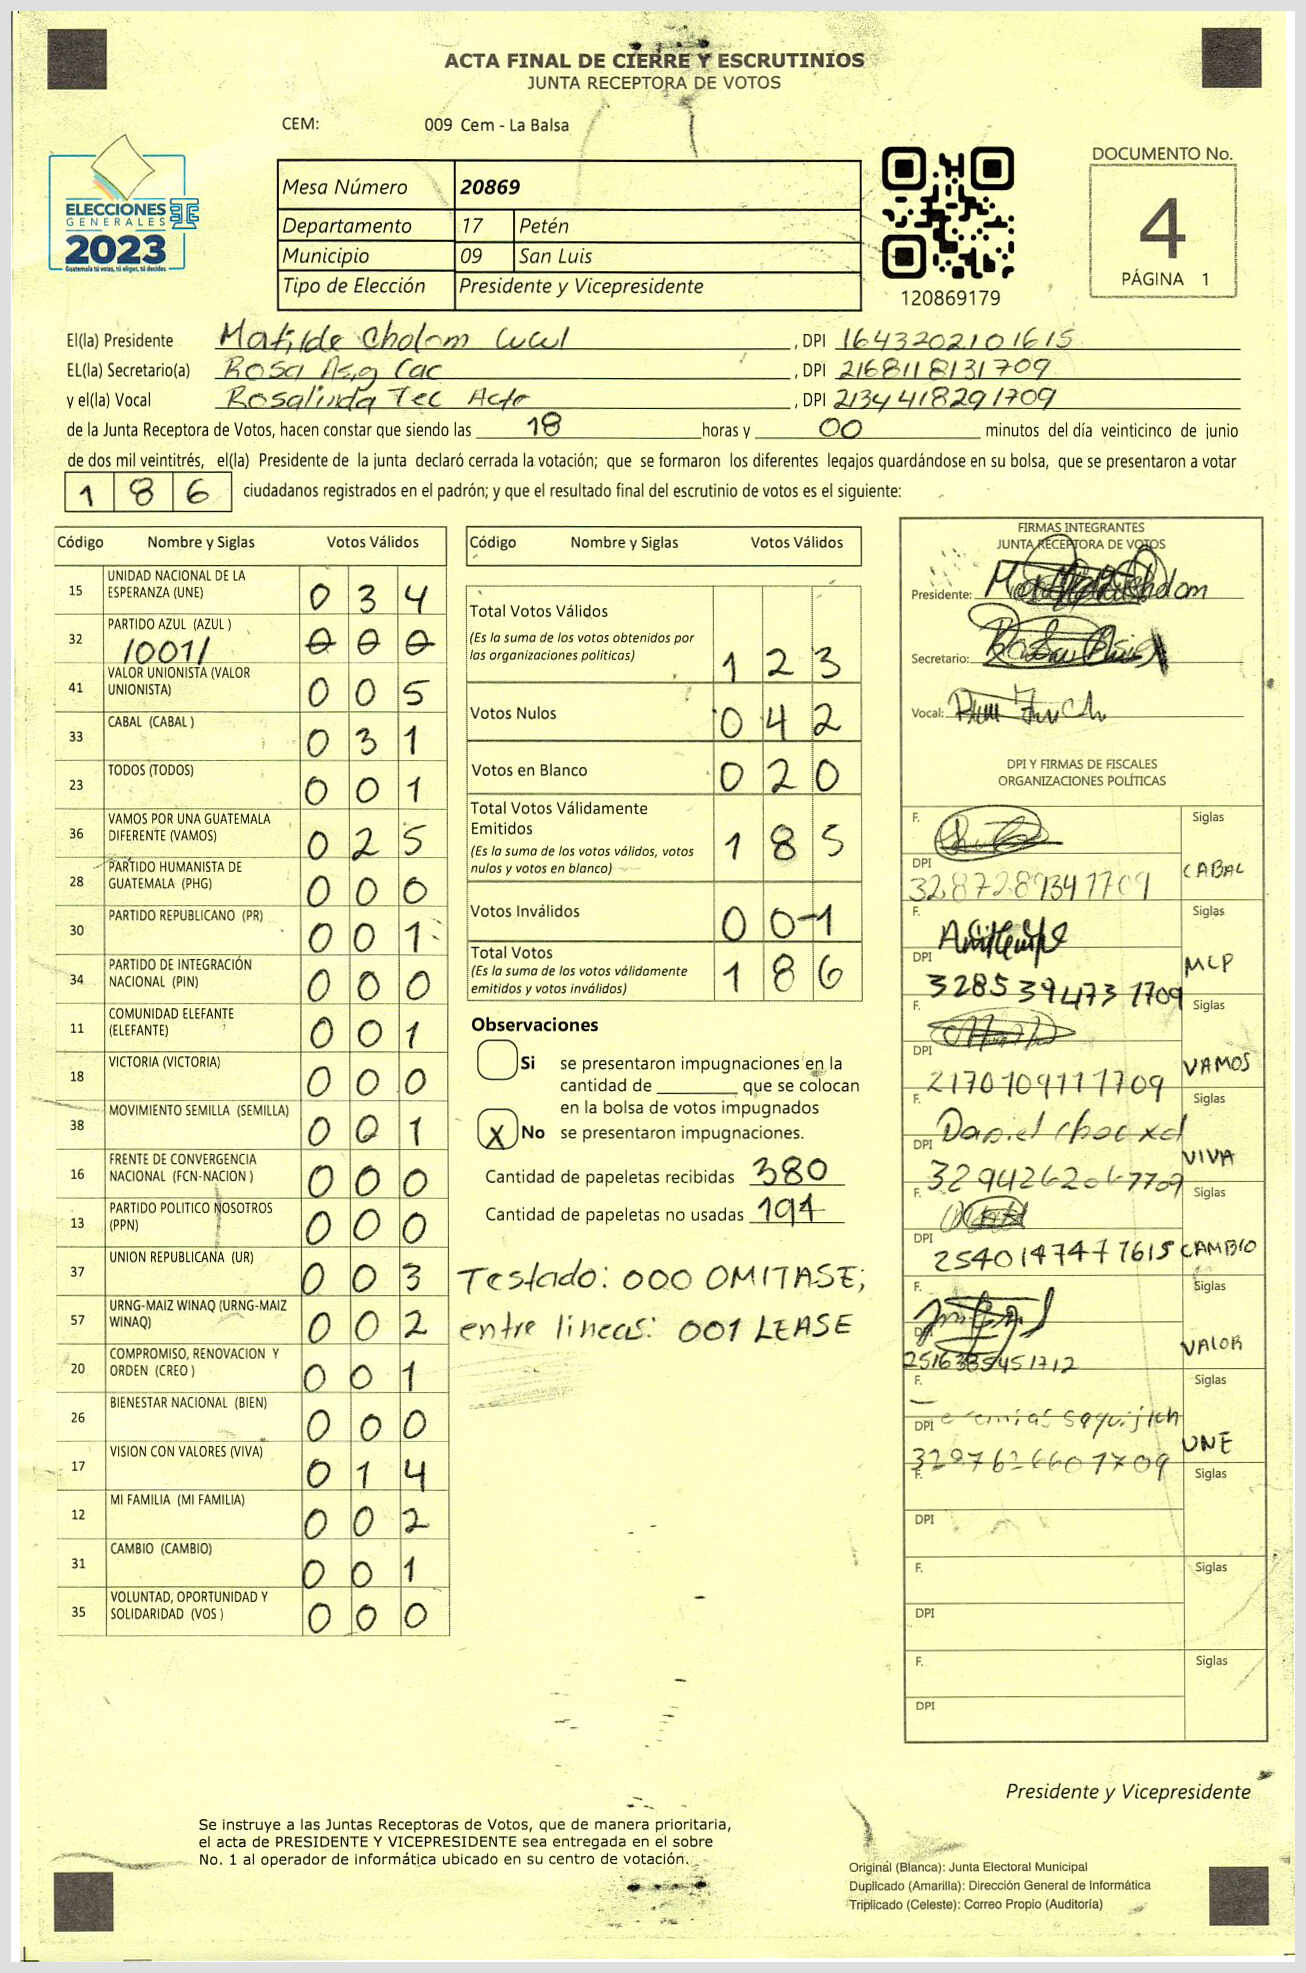 ACTA FINAL DE CIERRE Y ESCRUTINIOS
JUNTA RECEPTORA DE VOTOS
CEM: 009 Cem - La Balsa
ELECCIONES
GENERALES
2023
Guatemala tú votas, tú eliges, tú decides
Mesa Número 20869
Departamento 17 Petén
Municipio 09 San Luis
Tipo de Elección Presidente y Vicepresidente
120869179
DOCUMENTO No.
4
PÁGINA 1
El(la) Presidente Matilde Cholom Cucul , DPI 1643202101615
EL(la) Secretario(a) Rosa Asig Cac , DPI 2168118131709
y el(la) Vocal Rosalinda Tec , DPI 2134418291709
de la Junta Receptora de Votos, hacen constar que siendo las 18 horas y 00 minutos del día veinticinco de junio
de dos mil veintitrés, el(la) Presidente de la junta declaró cerrada la votación; que se formaron los diferentes legajos guardándose en su bolsa, que se presentaron a votar
186 ciudadanos registrados en el padrón; y que el resultado final del escrutinio de votos es el siguiente:
Código Nombre y Siglas Votos Válidos
15 UNIDAD NACIONAL DE LA ESPERANZA (UNE) 0 3 4
32 PARTIDO AZUL (AZUL ) /001/ 0 0 0
41 VALOR UNIONISTA (VALOR UNIONISTA) 0 0 5
33 CABAL (CABAL ) 0 3 1
23 TODOS (TODOS) 0 0 1
36 VAMOS POR UNA GUATEMALA DIFERENTE (VAMOS) 0 2 5
28 PARTIDO HUMANISTA DE GUATEMALA (PHG) 0 0 0
30 PARTIDO REPUBLICANO (PR) 0 0 1
34 PARTIDO DE INTEGRACIÓN NACIONAL (PIN) 0 0 0
11 COMUNIDAD ELEFANTE (ELEFANTE) 0 0 1
18 VICTORIA (VICTORIA) 0 0 0
38 MOVIMIENTO SEMILLA (SEMILLA) 0 0 1
16 FRENTE DE CONVERGENCIA NACIONAL (FCN-NACION ) 0 0 0
13 PARTIDO POLITICO NOSOTROS (PPN) 0 0 0
37 UNION REPUBLICANA (UR) 0 0 3
57 URNG-MAIZ WINAQ (URNG-MAIZ WINAQ) 0 0 2
20 COMPROMISO, RENOVACION Y ORDEN (CREO ) 0 0 1
26 BIENESTAR NACIONAL (BIEN) 0 0 0
17 VISION CON VALORES (VIVA) 0 1 4
12 MI FAMILIA (MI FAMILIA) 0 0 2
31 CAMBIO (CAMBIO) 0 0 1
35 VOLUNTAD, OPORTUNIDAD Y SOLIDARIDAD (VOS ) 0 0 0
Código Nombre y Siglas Votos Válidos
Total Votos Válidos
(Es la suma de los votos obtenidos por
las organizaciones políticas) 1 2 3
Votos Nulos 0 4 2
Votos en Blanco 0 2 0
Total Votos Válidamente
Emitidos
(Es la suma de los votos válidos, votos
nulos y votos en blanco) 1 8 5
Votos Inválidos 0 0 1
Total Votos
(Es la suma de los votos válidamente
emitidos y votos inválidos) 1 8 6
Observaciones
Si se presentaron impugnaciones en la
cantidad de ________ que se colocan
en la bolsa de votos impugnados
X No se presentaron impugnaciones.
Cantidad de papeletas recibidas 380
Cantidad de papeletas no usadas 194
Testado: 000 OMITASE;
entre lineas: 001 LEASE
FIRMAS INTEGRANTES
JUNTA RECEPTORA DE VOTOS
Presidente:
Secretario:
Vocal:
DPI Y FIRMAS DE FISCALES
ORGANIZACIONES POLÍTICAS
F. Siglas
DPI 3287289341709 CABAL
F. Siglas
DPI 3285394731709 MLP
F. Siglas
DPI 2170109111709 VAMOS
F. Daniel choc xol Siglas
DPI VIVA
F. Siglas
DPI 2540147477615 CAMBIO
F. Siglas
DPI VALOR
F. Siglas
DPI UNE
F. Siglas
DPI
F. Siglas
DPI
F. Siglas
DPI
Presidente y Vicepresidente
Se instruye a las Juntas Receptoras de Votos, que de manera prioritaria,
el acta de PRESIDENTE Y VICEPRESIDENTE sea entregada en el sobre
No. 1 al operador de informática ubicado en su centro de votación.
Original (Blanca): Junta Electoral Municipal
Duplicado (Amarilla): Dirección General de Informática
Triplicado (Celeste): Correo Propio (Auditoría)